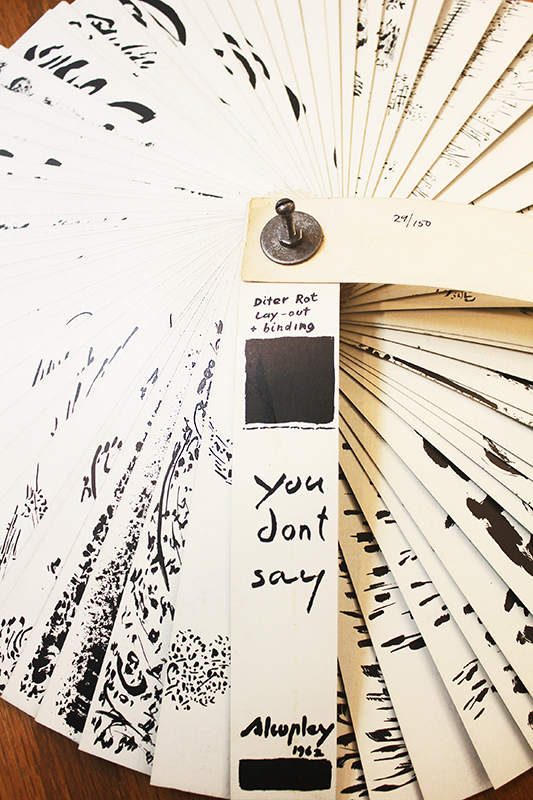 29/150
Diter Rot
Lay-out
+ binding
you
dont
say
Alcopley
1962